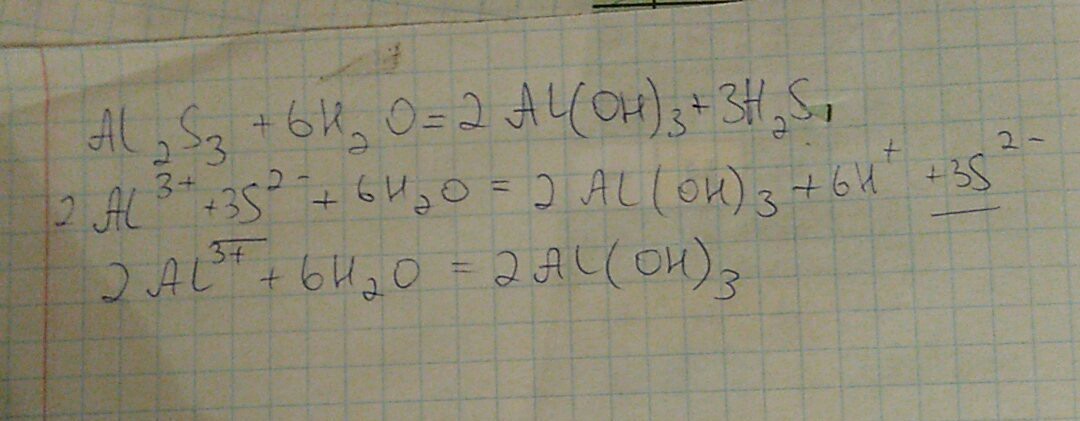 Al₂S₃ + 6H₂O = 2Al(OH)₃ + 3H₂S,
2Al³⁺ + 3S²⁻ + 6H₂O = 2Al(OH)₃ + 6H⁺ + 3S²⁻
2Al³⁺ + 6H₂O = 2Al(OH)₃